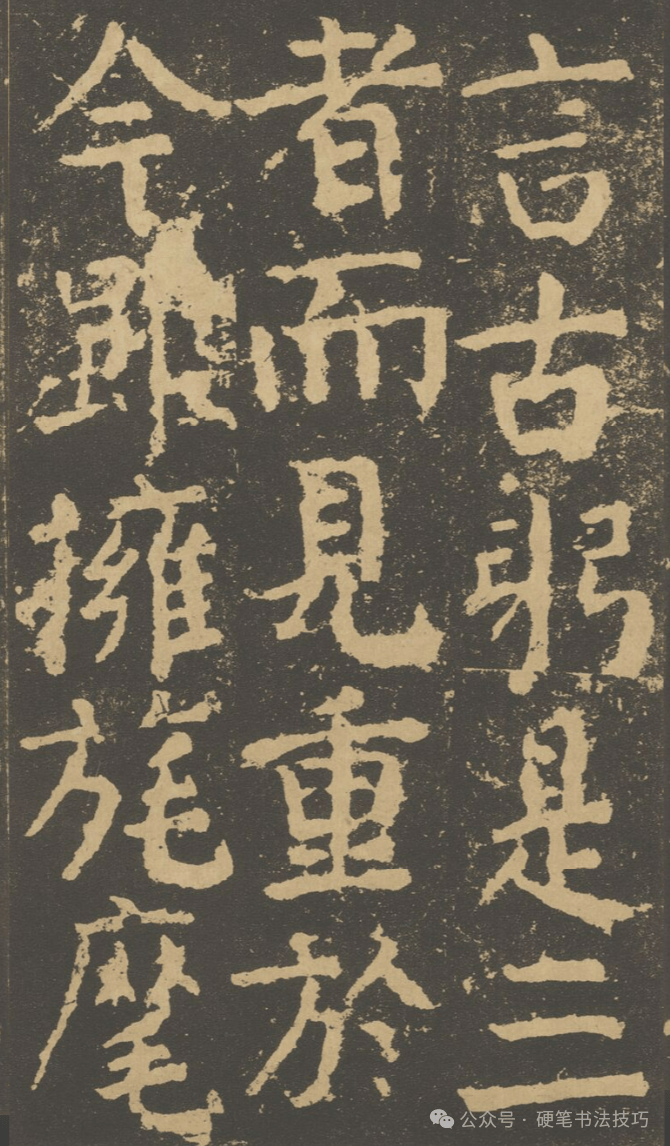 言古躬是三
者而見重於
今雖擁旄麾
公众号·硬笔书法技巧